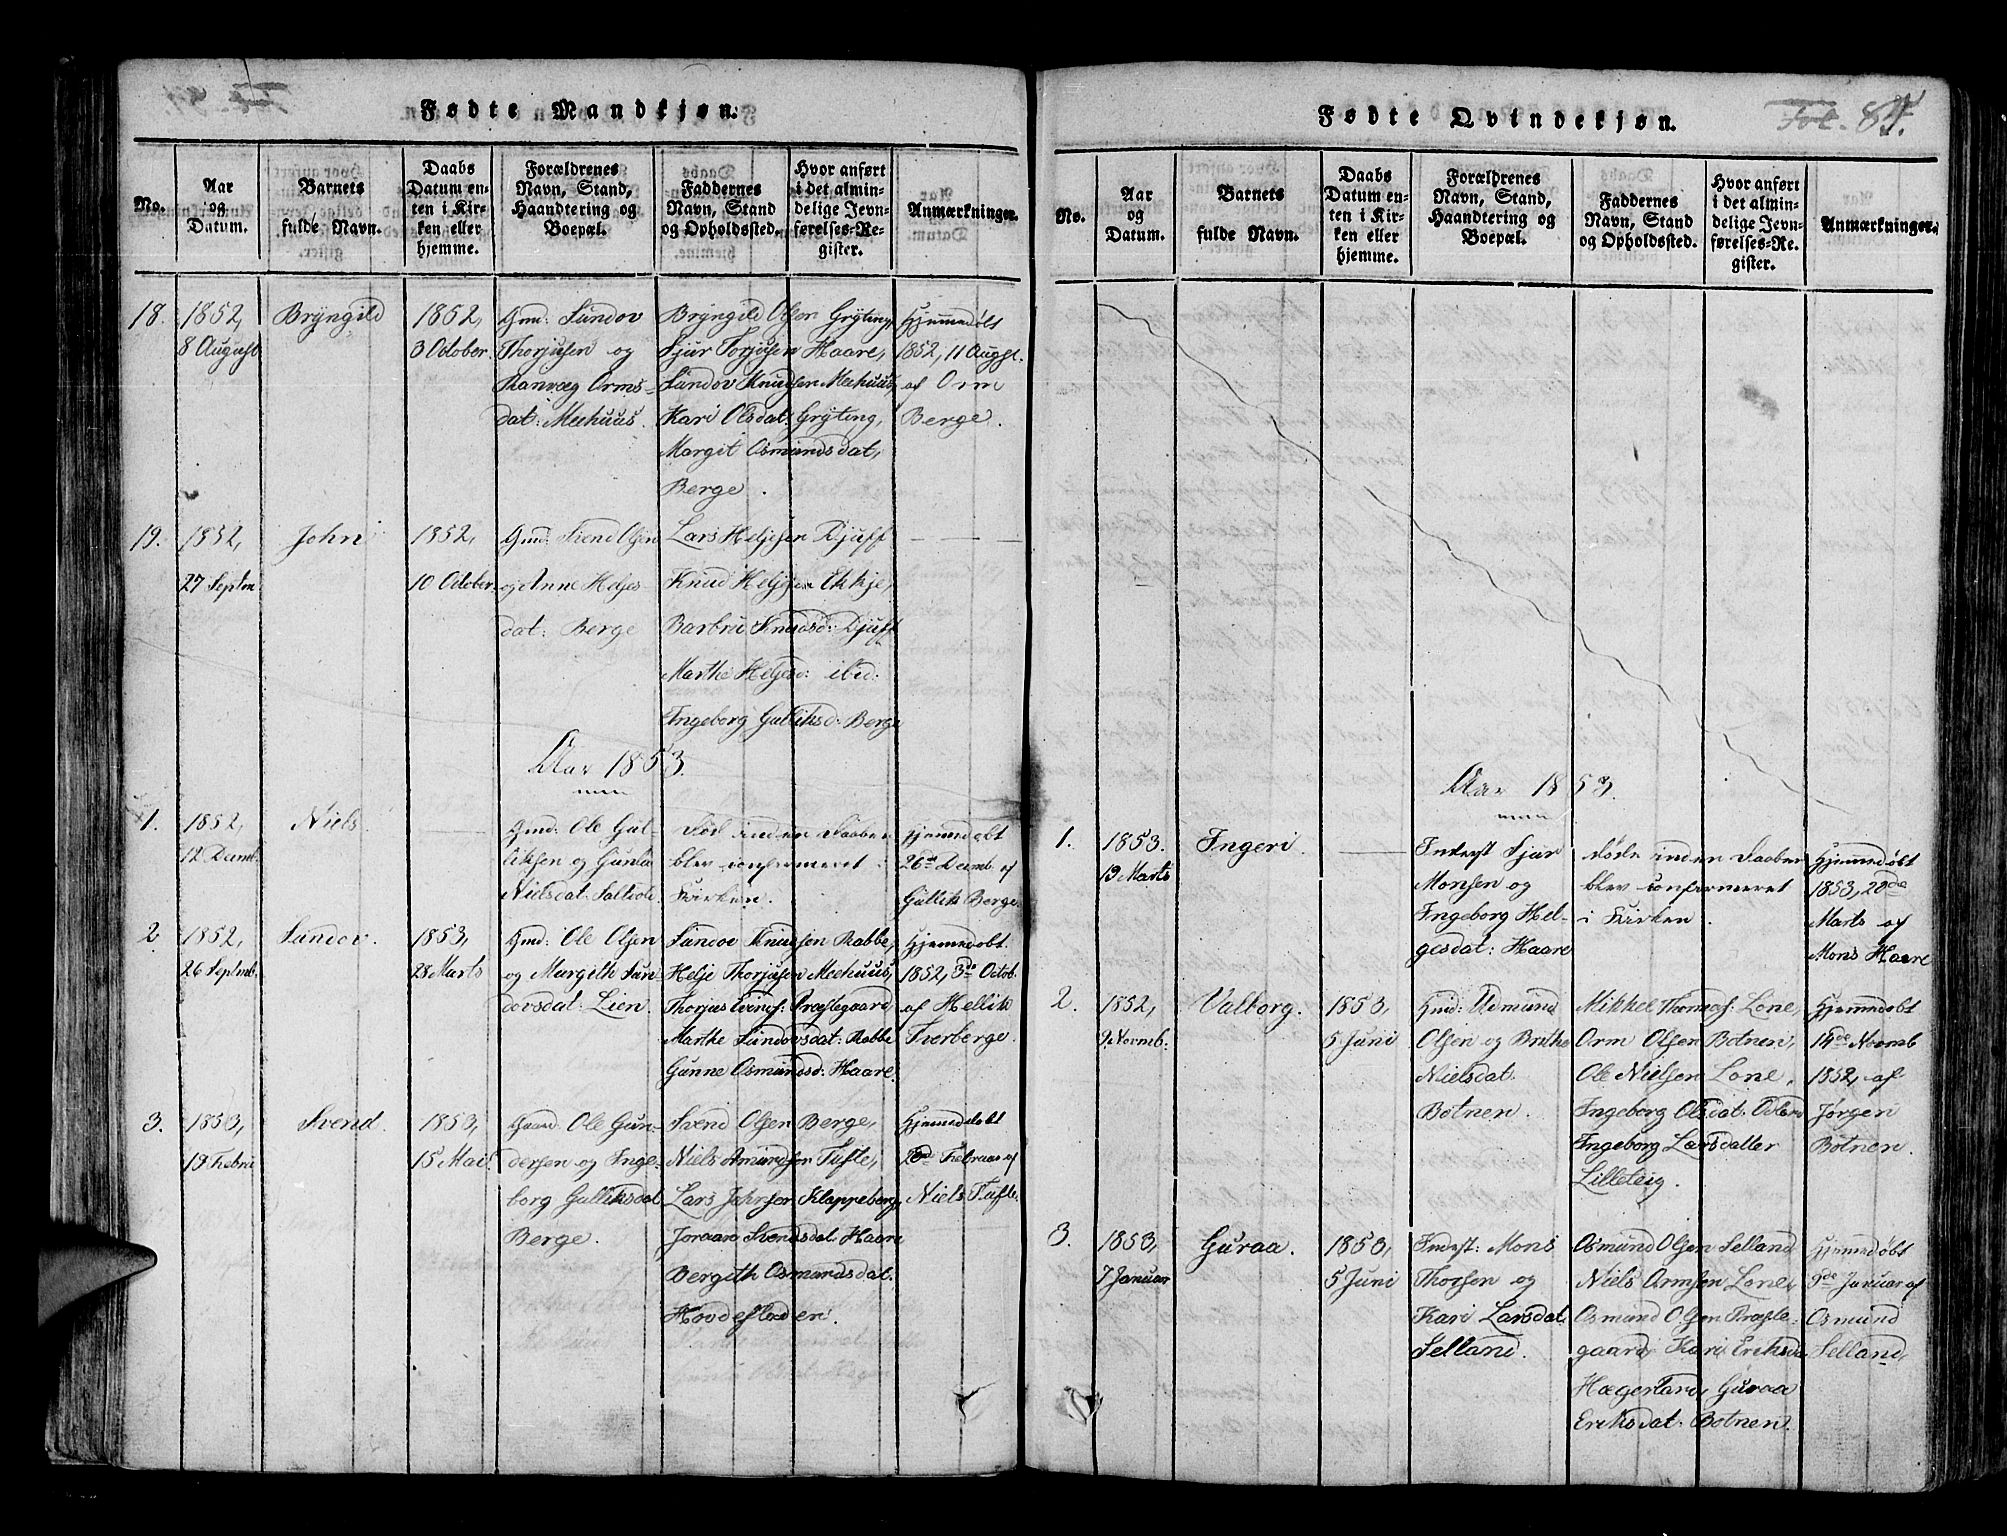 Fødte Mandkjøn.
No.
Aar
og
Datum.
Barnets
fulde Navn.
Daabs
Datum en-
ten i Kir-
ken eller
hjemme.
Forældrenes
Navn, Stand,
Haandtering og
Boepæl.
Faddernes
Navn, Stand
og Opholdssted.
Hvor anført
i det almin-
delige Jevn-
førelses-Re-
gister.
Anmærkninger.
18.
1852,
8 August
Bryngild
1852,
3 October.
Gmd. Sundov
Thorjusen og
Ranvæg Orms-
dat: Meehuus.
Bryngild Olsen Gryting,
Sjur Torjusen Haare,
Sundov Knudsen Meehuus,
Kari Olsdat: Gryting,
Margit Osmundsdat,
Berge.
Hjemmedøbt
1852, 11 Augst.
af Orm
Berge.
19.
1852,
27 Septm
John
1852,
10 October.
Gmd: Svend Olsen
og Anne Heljes-
dat: Berge
Lars Heljesen Djuff
Knud Heljesen Ekkje,
Barbru Knudsd: Djuff
Marthe Heljesd: ibid:
Ingeborg Gulliksd: Berge
Aar 1853.
1.
1852,
12 Decmb.
Niels.
Gmd: Ole Gul-
liksen og Gunla
Nielsdat:
Død inden Daaben
blev confermeret i
Kirken.
Hjemmedøbt
26de Decmb. af
Gullik Berge.
2
1852,
26 Septmb.
Sundov.
1853,
28 Marts
Gmd: Ole Olsen
og Margith Sun-
dovsdat: Lien.
Sundov Knudsen Rabbe,
Helje Thorjusen Meehuus,
Thorjus Præstegaard,
Marthe Sundovsdat: Rabbe
Gunne Osmundsd: Haare.
Hjemmedøbt
1852, 3de Octob.
af Hellik
Tverberge.
3.
1853,
19 Febru
Svend.
1853,
15 Mai.
Gaard. Ole Gun-
dersen og Inge-
borg Galliksdat
Berge.
Svend Olsen Berge,
Niels Amundsen Tufte,
Lars Johnsen Klappeberg,
Joraan Svendsdat. Haare
Bergith Osmundsdat.
Hovdefladen.
Hjemmedøbt
20de Februar af
Niels Tufte.
Fødte Qvindekjøn.
Fol. 84.
No.
Aar
og
Datum.
Barnets
fulde Navn.
Daabs
Datum en-
ten i Kir-
ken eller
hjemme.
Forældrenes
Navn, Stand,
Haandtering og
Boepæl.
Faddernes
Navn, Stand
og Opholdssted.
Hvor anført
i det almin-
delige Jevn-
førelses-Re-
gister.
Anmærkninger.
Aar 1853.
1.
1853.
19 Marts
Ingeri.
Inderst Sjur
Monsen og
Ingeborg Hel-
gesdat: Haare
Døde inden Daaben
blev confermeret
i Kirken.
Hjemmedøbt
1853, 20de
Marts af
Mons Haare
2.
1852,
9 Novmb.
Valborg.
1853,
5 Juni
Gmd: Udmund
Olsen og Brithe
Nielsdat.
Botnen.
Mikkel Thomass: Lone,
Orm Olsen Botnen,
Ole Nielsen Lone,
Ingeborg Olsdat:
Ingeborg Larsdatter
Lilleteig.
Hjemmedøbt
14de Novmb
1852, af
Jørgen
Botnen.
3.
1853,
7 Januar
Guraa.
1853,
5 Juni
Inderst: Mons
Thorsen og
Kari Larsdat.
Selland.
Osmund Olsen Selland
Niels Ormsen Lone,
Osmund Olsen Præste-
gaard, Kari Eriksda
Hægerland, Guraa
Eriksdat: Botnen.
Hjemmedøbt
9de Januar af
Osmund
Selland.